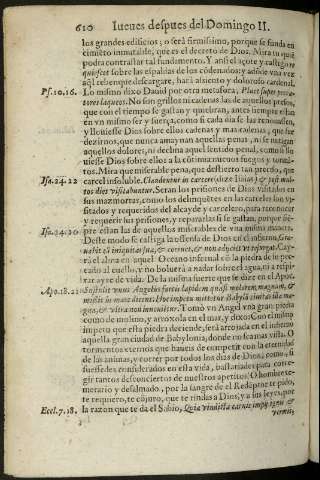 610 Iueues despues del Domingo II.
los grandes edificios; o será firmissimo, porque se funda en
cimiẽto inmutable, que es el decreto de Dios. Mira tu quiẽ
podra contrastar tal fundamento. Y assi el açote y castigo re
quiescet sobre las espaldas de los cõdenados; y adõde vna vez
Ps. 10. 16. Lo mismo dixo Dauid por otra metafora, Pluet super pecca-
tores laqueos. No son grillos ni cadenas las de aquellos presos,
que con el tiempo se gastan y quiebran, antes siempre estan
en vn mismo ser y fuerça, como si cada dia se las renouassen,
y llouiesse Dios sobre ellos cadenas y mas cadenas; que fue
dezirnos, que nunca amaynan aquellas penas, ni se mitigan
aquellos dolores, ni declina aquel sentido penal, como si llo
uiesse Dios sobre ellos a la cõtinua nueuos fuegos y tormẽ-
tos. Mira que miserable pena, que destierro tan precito, que
Isa. 24. 22 carcel insoluble. Claudentur in carcere (dize Isaias) & post mul-
tos dies visitabuntur. Seran los prisiones de Dios visitados en
sus mazmorras, como los delinquẽtes en las carceles son vi-
sitados y requeridos del alcayde y carcelero, para reconocer
y requerir sus prisiones, y repararlas si se gastan, porque siẽ-
pre estan las de aquellos miserables de vna misma manera.
Isa. 24. 20 Deste modo se castiga la ofensa de Dios en el infierno, Gra-
uabit eã iniquitas sua, & corruet, & non adijciet vt resurgat. Cae-
rá el alma en aquel Oceano infernal cõ la piedra de su pe-
cado al cuello, y no boluerá a nadar sobre el agua, ni a respi-
rar ayre de vida. De la misma suerte que se dize en el Apoc.
Apo. 18. 21 Sustulit vnus Angelus fortis lapidem quasi molarem magnum, &
misit in mare dicens: Hoc impetu mittetur Babylõ ciuitas illa ma-
gna, & vltra non inuenietur. Tomó vn Angel vna gran piedra
como de molino, y arrojola en el mar, y dixo: Con el mismo
impetu que esta piedra deciende, será arrojada en el infierno
aquella gran ciudad de Babylonia, donde nunca mas vista. O
tormentos eternos que haueis de competir con la eternidad
de las animas, y correr por todos los dias de Dios; como, si
fuessedes considerados en esta vida, bastariades para corre-
gir tantos desconciertos de nuestros apetitos! O hombre te-
merario y desalmado, por la sangre de el Redẽptor te pido,
te requiero, te cõjuro, que te rindas a Dios, y a sus leyes, por
Eccl. 7. 18. la razon que te da el Sabio, Quia vindicta carnis impij ignis &
vermis,